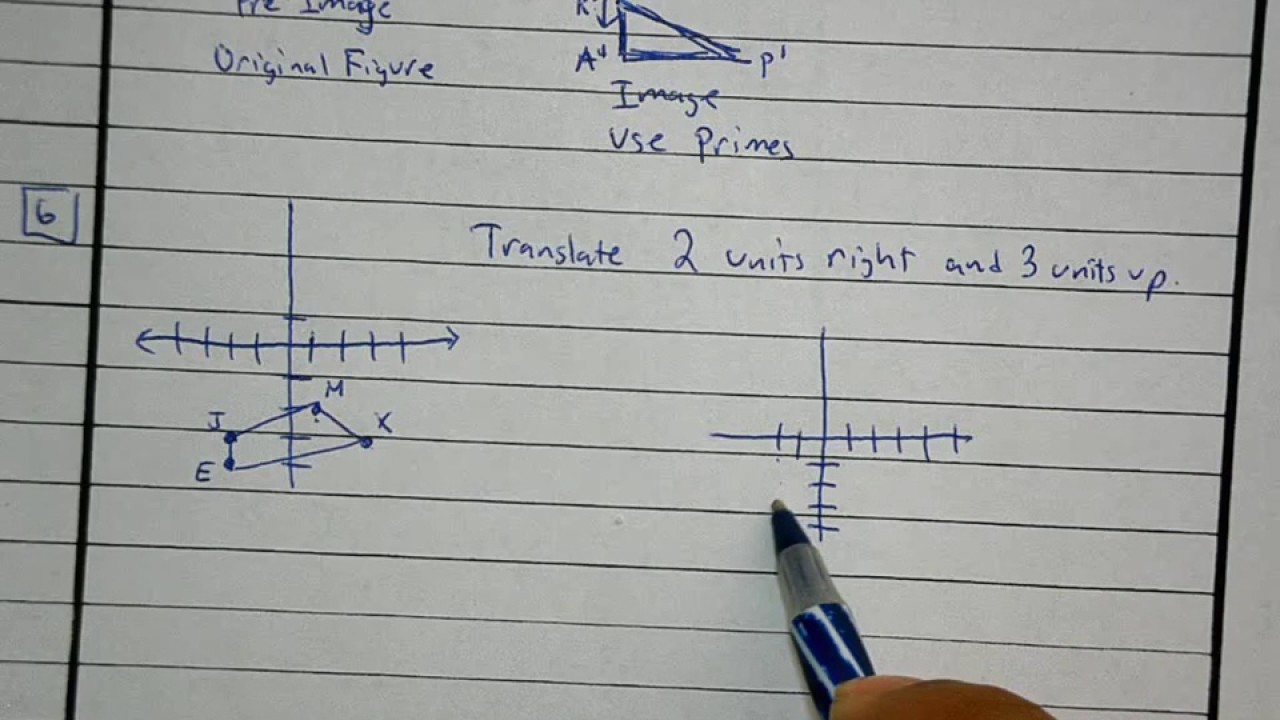 Pre Image
Original Figure
R'
A'
P'
Image
Use Primes
6
Translate 2 units right and 3 units up.
M
J
X
E